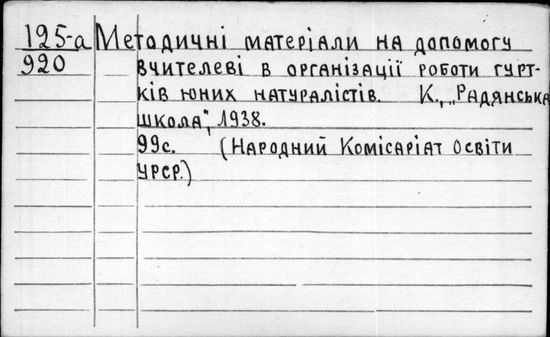 125-а Методичні матеріали на допомогу
920 вчителеві в організації роботи гурт-
ків юних натуралістів. К., „Радянська
школа", 1938.
99с. (Народний Комісаріат Освіти
УРСР.)